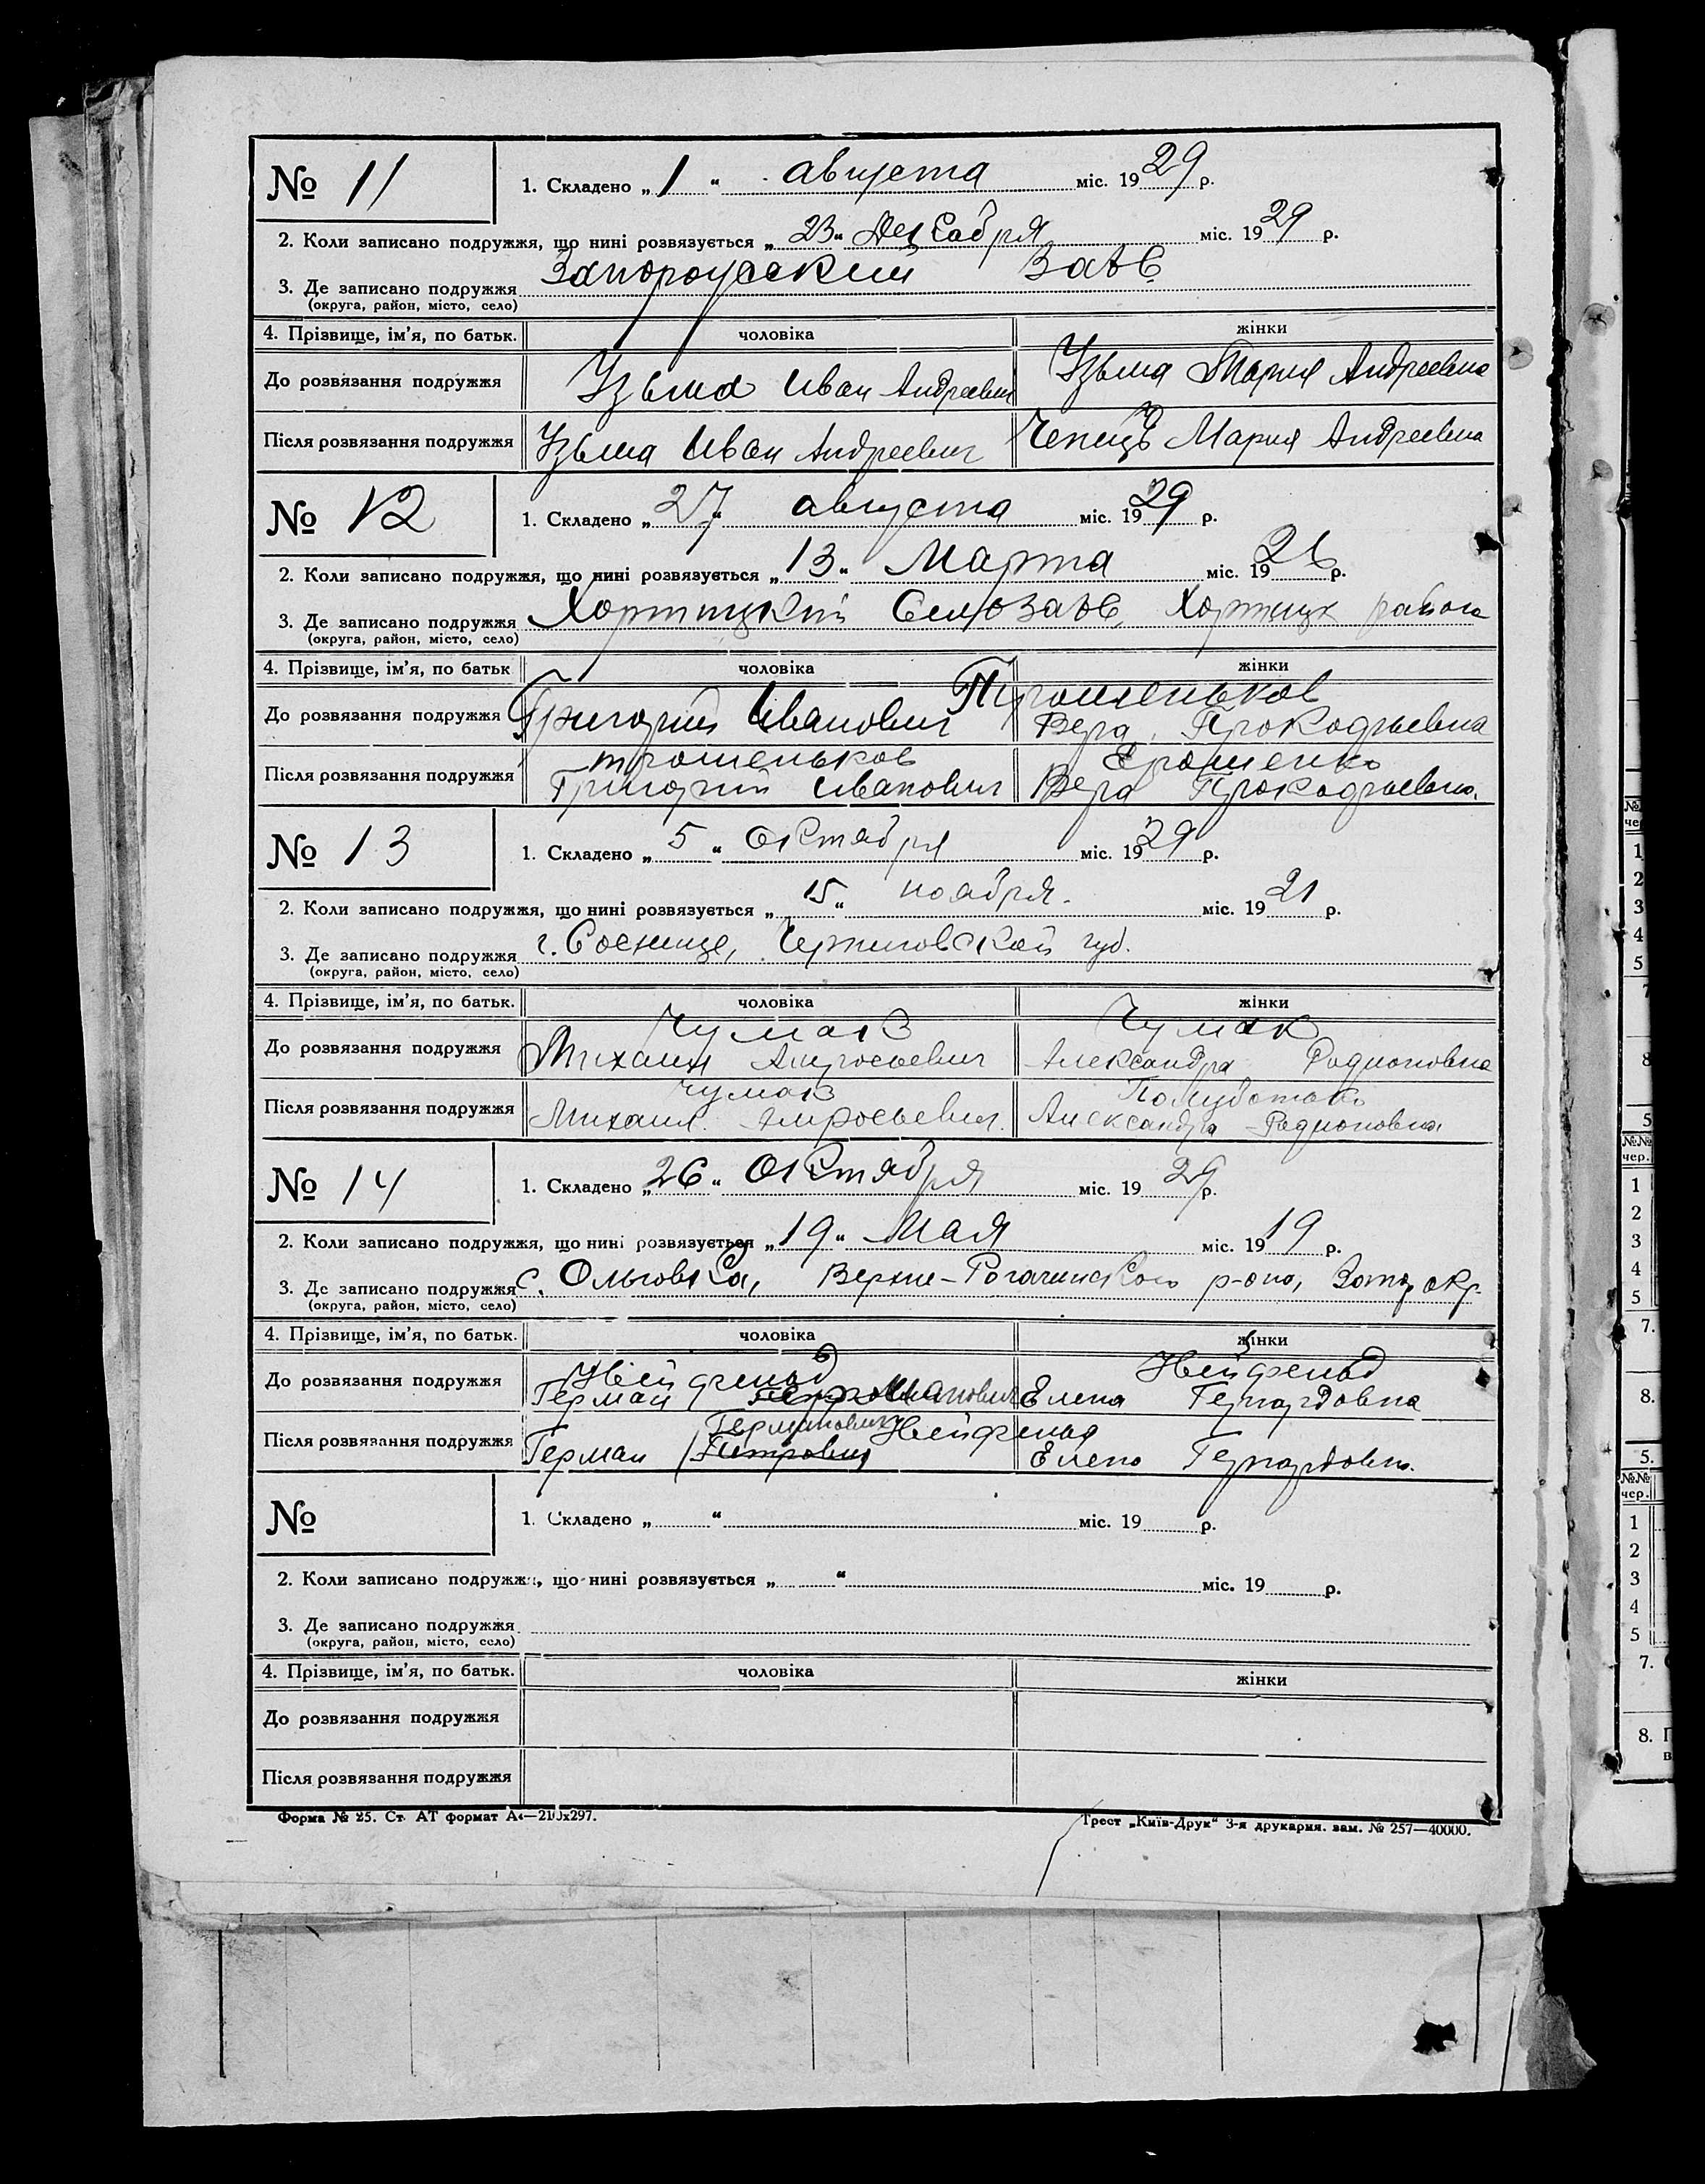 № 11
1. Складено „ 1 “ августа міс. 19 29 р.
2. Коли записано подружжя, що нині розвязується „ 23 “ Декабря міс. 19 29 р.
3. Де записано подружжя Запорожский ЗАГС
(округа, район, місто, село)
4. Прізвище, ім'я, по батьк. чоловіка жінки
До розвязання подружжя Узьма Иван Андреевич Узьма Мария Андреевна
Після розвязання подружжя Узьма Иван Андреевич Мария Андреевна
№ 12
1. Складено „ 27 “ августа міс. 19 29 р.
2. Коли записано подружжя, що нині розвязується „ 13 “ Марта міс. 19 26 р.
3. Де записано подружжя Хортицкий Хортицк района
(округа, район, місто, село)
4. Прізвище, ім'я, по батьк чоловіка жінки
До розвязання подружжя Григорий Иванович Вера Прокофьевна
трошеньков Ерошенко
Після розвязання подружжя Григорий Иванович Вера Прокофьевна.
№ 13
1. Складено „ 5 “ Октября міс. 19 29 р.
2. Коли записано подружжя, що нині розвязується „ 15 “ ноября. міс. 19 21 р.
3. Де записано подружжя г. Соснице, Черниговской губ.
(округа, район, місто, село)
4. Прізвище, ім'я, по батьк. чоловіка жінки
Чумак Чумак
До розвязання подружжя Михаил Александра Родионовна
Чумак Полуботок
Після розвязання подружжя Михаил Александра Родионовна
№ 14
1. Складено „ 26 “ Октября міс. 19 29 р.
2. Коли записано подружжя, що нині розвязується „ 19 “ Мая міс. 19 19 р.
3. Де записано подружжя с. Ольговка, Верхне-Рогачинского р-она, Запор окр.
(округа, район, місто, село)
4. Прізвище, ім'я, по батьк. чоловіка жінки
Нейфельд Нейфельд
До розвязання подружжя Герман Елена Гергардовна
Германович Нейфельд
Після розвязання подружжя Герман Петрович Елена Гергардовна.
№
1. Складено „ “ міс. 19 р.
2. Коли записано подружжя, що нині розвязується „ “ міс. 19 р.
3. Де записано подружжя
(округа, район, місто, село)
4. Прізвище, ім'я, по батьк. чоловіка жінки
До розвязання подружжя
Після розвязання подружжя
Форма № 25. Ст. АТ формат А4—210х297. Трест „Київ-Друк“ 3-я друкарня. зам. № 257—40000.